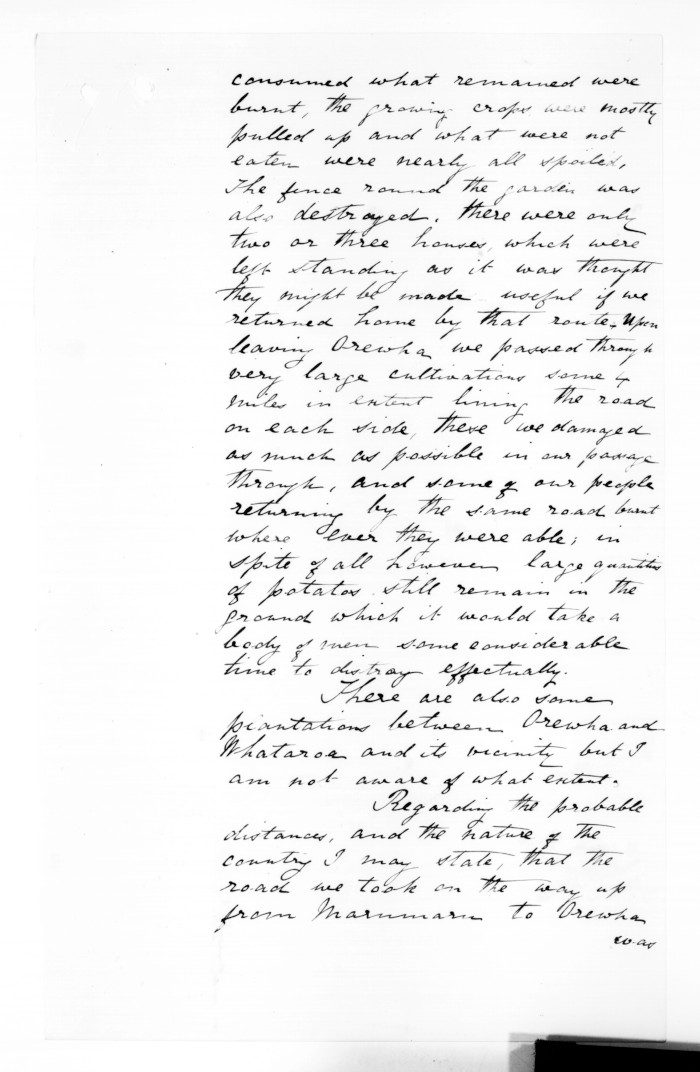 consumed what remained were
burnt, the growing crops were mostly
pulled up and what were not
eaten were nearly all spoiled,
The fence round the garden was
also destroyed. there were only
two or three houses, which were
left standing as it was thought
they might be made useful if we
returned home by that route. Upon
leaving Orewha we passed through
very large cultivations some 4
miles in extent lining the road
on each side, these we damaged
as much as possible in our passage
through, and some of our people
returning by the same road burnt
where ever they were able; in
spite of all however large quantities
of potatos still remain in the
ground which it would take a
body of men some considerable
time to distroy effectually.
There are also some
plantations between Orewha and
Whataroa and its vicinity but I
am not aware of what extent.
Regarding the probable
distances, and the nature of the
country I may state, that the
road we took on the way up
from Marumaru to Orewha
was